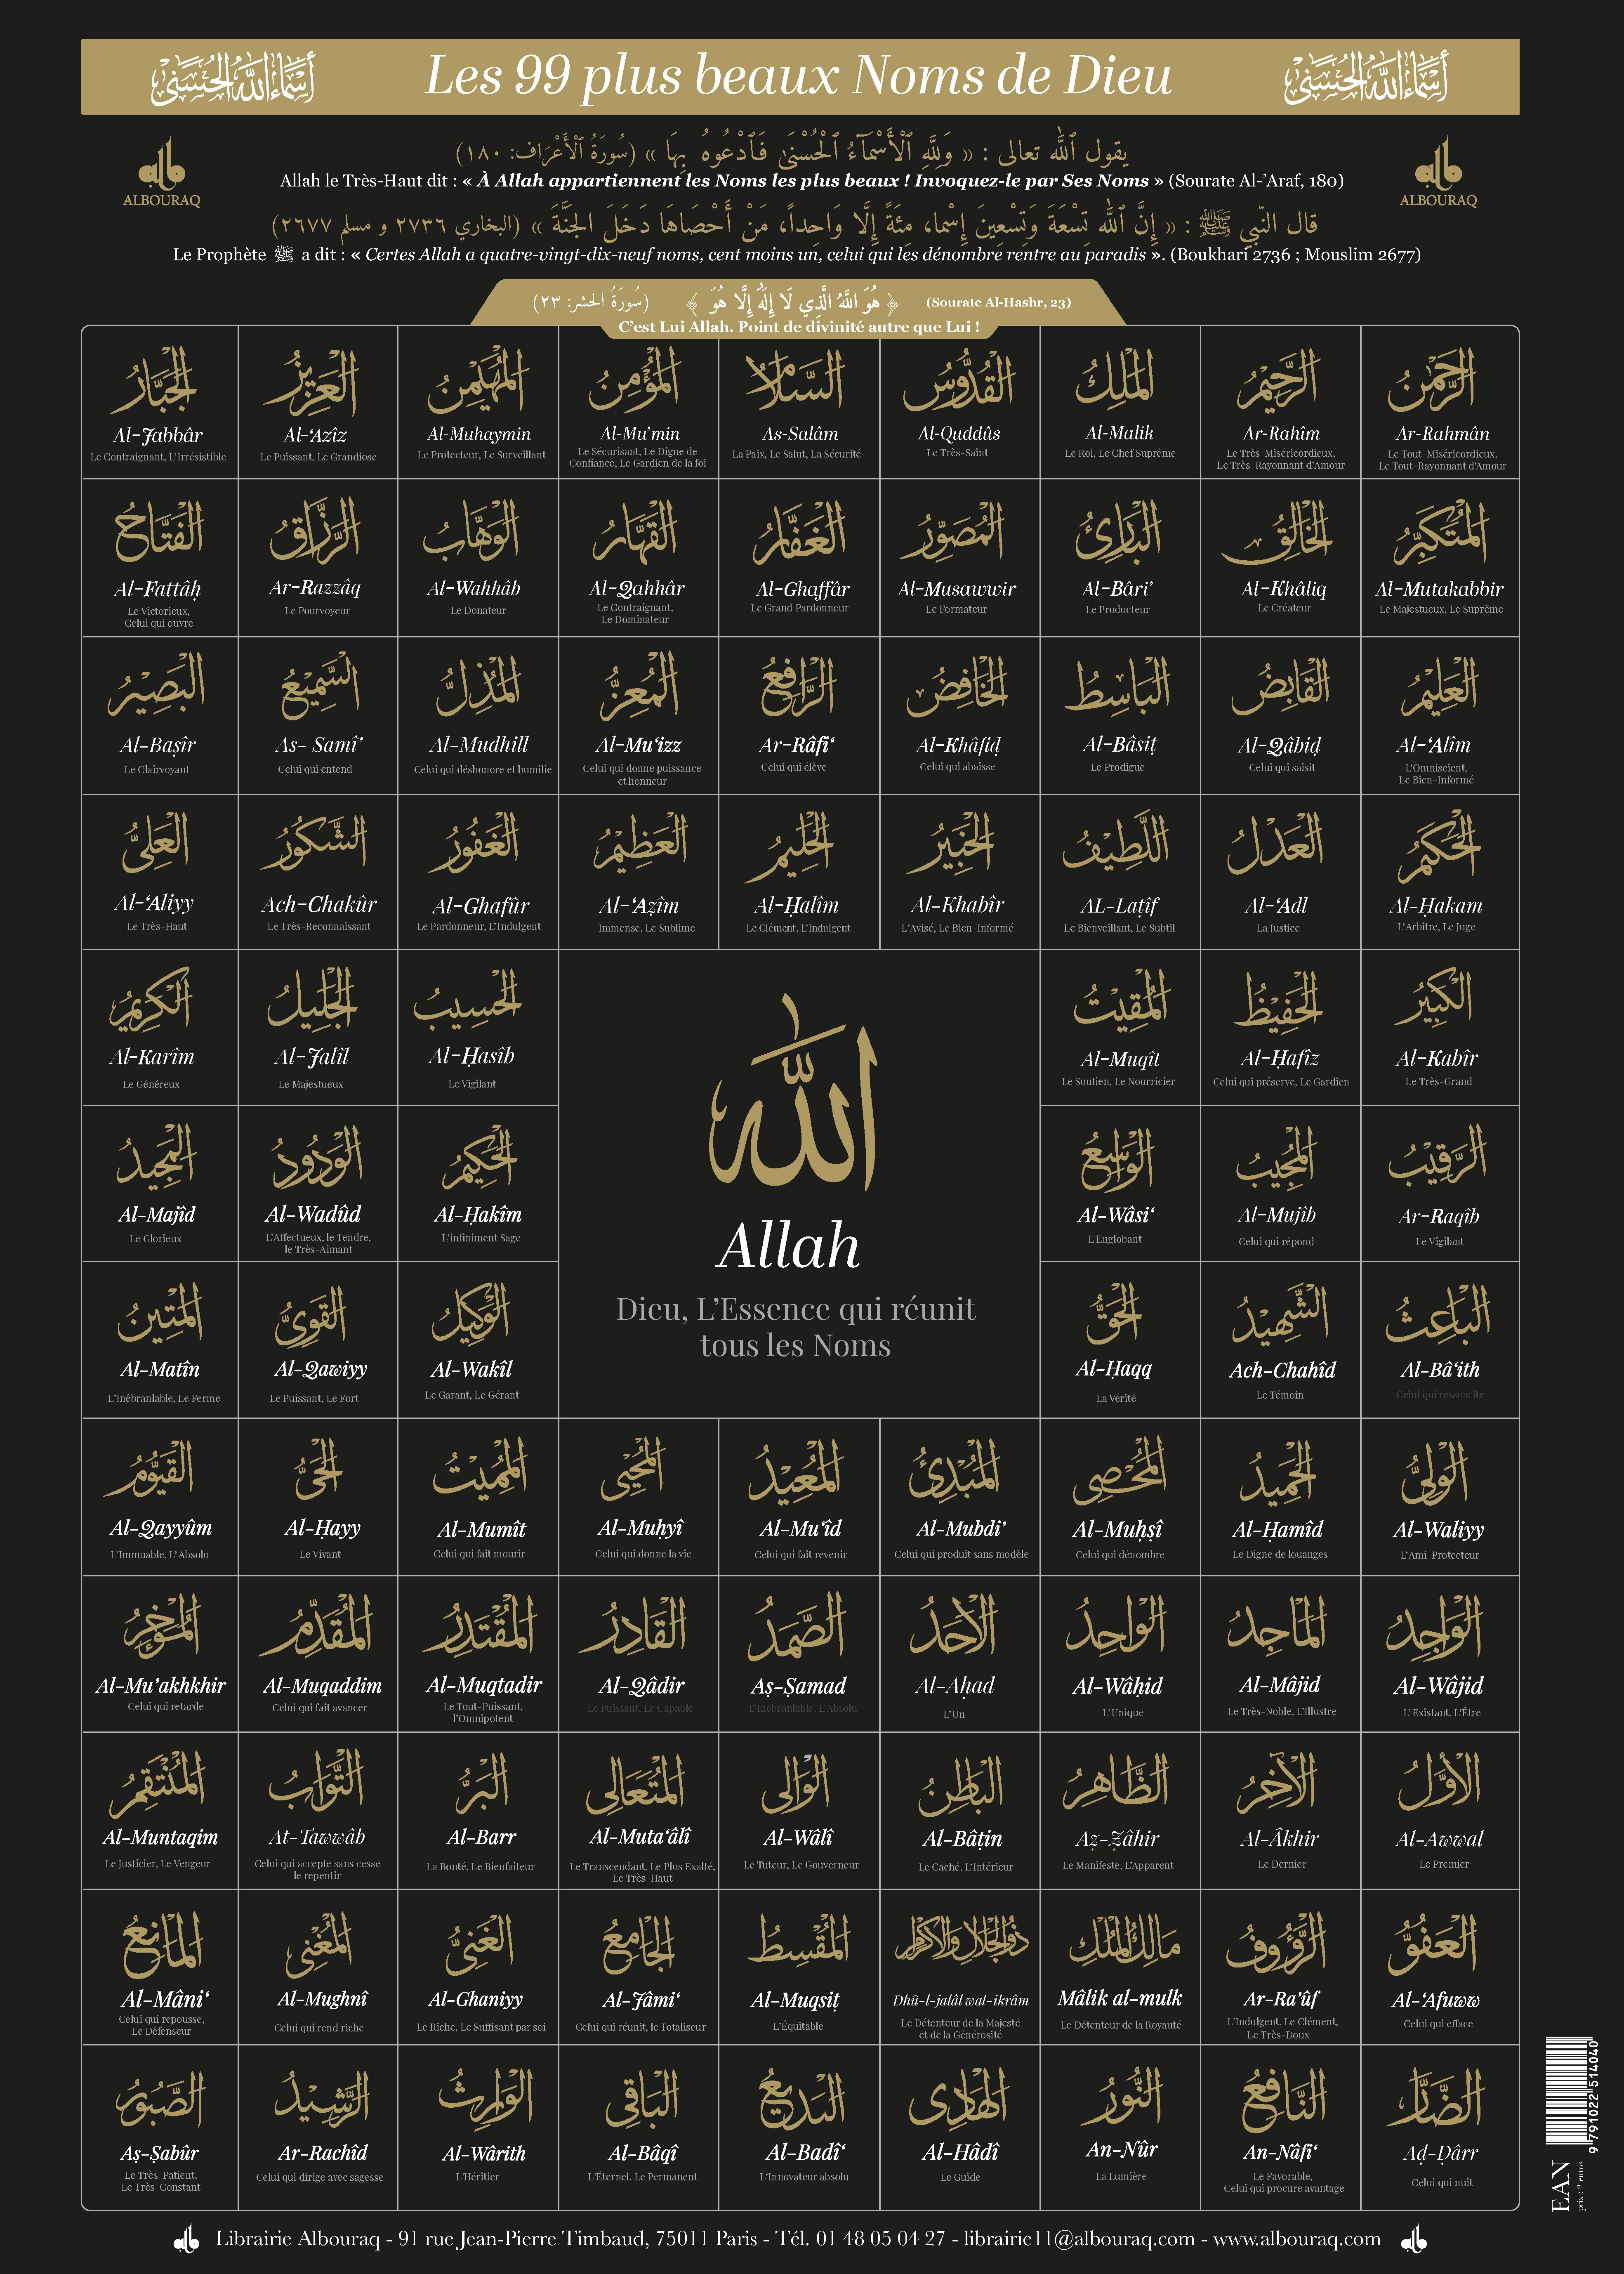 أسماء الله الحسنى
Les 99 plus beaux Noms de Dieu
أسماء الله الحسنى
ALBOURAQ
ALBOURAQ
يقول ٱللّٰه تعالى : « وَلِلَّهِ ٱلْأَسْمَآءُ ٱلْحُسْنَىٰ فَٱدْعُوهُ بِهَا » (سُورَةُ ٱلْأَعْرَاف: ١٨٠)
Allah le Très-Haut dit : « À Allah appartiennent les Noms les plus beaux ! Invoquez-le par Ses Noms » (Sourate Al-’Araf, 180)
قال النّبي ﷺ : « إِنَّ ٱللّٰه تِسْعَةَ وَتِسْعِينَ إِسْما، مِئَةً إِلَّا وَاحِداً، مَنْ أَحْصَاهَا دَخَلَ الجَنَّةَ » (البخاري ٢٧٣٦ و مسلم ٢٦٧٧)
Le Prophète ﷺ a dit : « Certes Allah a quatre-vingt-dix-neuf noms, cent moins un, celui qui les dénombre rentre au paradis ». (Boukhari 2736 ; Mouslim 2677)
(سُورَةُ الحشر: ٢٣) ﴿ هُوَ اللَّهُ الَّذِي لَا إِلَٰهَ إِلَّا هُوَ ﴾ (Sourate Al-Hashr, 23)
C’est Lui Allah. Point de divinité autre que Lui !
الجَبَّارُ
Al-Jabbâr
Le Contraignant, L’Irrésistible
العَزِيزُ
Al-‘Azîz
Le Puissant, Le Grandiose
المُهَيْمِنُ
Al-Muhaymin
Le Protecteur, Le Surveillant
المُؤْمِنُ
Al-Mu’min
Le Sécurisant, Le Digne de
Confiance, Le Gardien de la foi
السَّلَامُ
As-Salâm
La Paix, Le Salut, La Sécurité
القُدُّوسُ
Al-Quddûs
Le Très-Saint
المَلِكُ
Al-Malik
Le Roi, Le Chef Suprême
الرَّحِيْمُ
Ar-Rahîm
Le Très-Miséricordieux,
Le Très-Rayonnant d’Amour
الرَّحْمٰنُ
Ar-Rahmân
Le Tout-Miséricordieux,
Le Tout-Rayonnant d’Amour
الفَتَّاحُ
Al-Fattâḥ
Le Victorieux,
Celui qui ouvre
الرَّزَّاقُ
Ar-Razzâq
Le Pourvoyeur
الوَهَّابُ
Al-Wahhâb
Le Donateur
القَهَّارُ
Al-Qahhâr
Le Contraignant,
Le Dominateur
الغَفَّارُ
Al-Ghaffâr
Le Grand Pardonneur
المُصَوِّرُ
Al-Musawwir
Le Formateur
البَارِئُ
Al-Bâri’
Le Producteur
الخَالِقُ
Al-Khâliq
Le Créateur
المُتَكَبِّرُ
Al-Mutakabbir
Le Majestueux, Le Suprême
البَصِيْرُ
Al-Baṣîr
Le Clairvoyant
السَّمِيْعُ
As- Samî’
Celui qui entend
المُذِلُّ
Al-Mudhill
Celui qui déshonore et humilie
المُعِزُّ
Al-Mu‘izz
Celui qui donne puissance
et honneur
الرَّافِعُ
Ar-Râfi‘
Celui qui élève
الخَافِضُ
Al-Khâfiḍ
Celui qui abaisse
البَاسِطُ
Al-Bâsiṭ
Le Prodigue
القَابِضُ
Al-Qâbiḍ
Celui qui saisit
العَلِيْمُ
Al-‘Alîm
L’Omniscient,
Le Bien-Informé
العَلِيُّ
Al-‘Aliyy
Le Très-Haut
الشَّكُوْرُ
Ach-Chakûr
Le Très-Reconnaissant
الغَفُوْرُ
Al-Ghafûr
Le Pardonneur, L’Indulgent
العَظِيْمُ
Al-‘Aẓîm
Immense, Le Sublime
الحَلِيْمُ
Al-Ḥalîm
Le Clément, L’Indulgent
الخَبِيْرُ
Al-Khabîr
L’Avisé, Le Bien-Informé
اللَّطِيْفُ
AL-Laṭîf
Le Bienveillant, Le Subtil
العَدْلُ
Al-‘Adl
La Justice
الحَكَمُ
Al-Ḥakam
L’Arbitre, Le Juge
الكَرِيْمُ
Al-Karîm
Le Généreux
الجَلِيْلُ
Al-Jalîl
Le Majestueux
الحَسِيبُ
Al-Ḥasîb
Le Vigilant
المُقِيْتُ
Al-Muqît
Le Soutien, Le Nourricier
الحَفِيْظُ
Al-Ḥafîz
Celui qui préserve, Le Gardien
الكَبِيْرُ
Al-Kabîr
Le Très-Grand
المَجِيدُ
Al-Majîd
Le Glorieux
الوَدُوْدُ
Al-Wadûd
L’Affectueux, le Tendre,
le Très-Aimant
الحَكِيْمُ
Al-Ḥakîm
L’infiniment Sage
اللّٰه
Allah
Dieu, L’Essence qui réunit
tous les Noms
الوَاسِعُ
Al-Wâsi‘
L’Englobant
المُجِيْبُ
Al-Mujîb
Celui qui répond
الرَّقِيْبُ
Ar-Raqîb
Le Vigilant
المَتِيْنُ
Al-Matîn
L’Inébranlable, Le Ferme
القَوِيُّ
Al-Qawiyy
Le Puissant, Le Fort
الوَكِيْلُ
Al-Wakîl
Le Garant, Le Gérant
الحَقُّ
Al-Ḥaqq
La Vérité
الشَّهِيْدُ
Ach-Chahîd
Le Témoin
البَاعِثُ
Al-Bâ‘ith
Celui qui ressuscite
القَيُّوْمُ
Al-Qayyûm
L’Immuable, L’ Absolu
الحَيُّ
Al-Ḥayy
Le Vivant
المُمِيْتُ
Al-Mumît
Celui qui fait mourir
المُحْيِي
Al-Muḥyî
Celui qui donne la vie
المُعِيْدُ
Al-Mu‘îd
Celui qui fait revenir
المُبْدِئُ
Al-Mubdi’
Celui qui produit sans modèle
المُحْصِي
Al-Muḥṣî
Celui qui dénombre
الحَمِيْدُ
Al-Ḥamîd
Le Digne de louanges
الوَلِيُّ
Al-Waliyy
L’Ami-Protecteur
المُؤَخِّرُ
Al-Mu’akhkhir
Celui qui retarde
المُقَدِّمُ
Al-Muqaddim
Celui qui fait avancer
المُقْتَدِرُ
Al-Muqtadir
Le Tout-Puissant,
l’Omnipotent
القَادِرُ
Al-Qâdir
Le Puissant, Le Capable
الصَّمَدُ
Aṣ-Ṣamad
L’Inébranlable, L’Absolu
الأَحَدُ
Al-Aḥad
L’Un
الوَاحِدُ
Al-Wâḥid
L’Unique
المَاجِدُ
Al-Mâjid
Le Très-Noble, L’Illustre
الوَاجِدُ
Al-Wâjid
L’ Existant, L’Être
المُنْتَقِمُ
Al-Muntaqim
Le Justicier, Le Vengeur
التَّوَّابُ
At-Tawwâb
Celui qui accepte sans cesse
le repentir
البَرُّ
Al-Barr
La Bonté, Le Bienfaiteur
المُتَعَالِي
Al-Muta‘âlî
Le Transcendant, Le Plus Exalté,
Le Très-Haut
الوَالِي
Al-Wâlî
Le Tuteur, Le Gouverneur
البَاطِنُ
Al-Bâtin
Le Caché, L’Intérieur
الظَّاهِرُ
Aẓ-Ẓâhir
Le Manifeste, L’Apparent
الآخِرُ
Al-Âkhir
Le Dernier
الأَوَّلُ
Al-Awwal
Le Premier
المَانِعُ
Al-Mâni‘
Celui qui repousse,
Le Défenseur
المُغْنِي
Al-Mughnî
Celui qui rend riche
الغَنِيُّ
Al-Ghaniyy
Le Riche, Le Suffisant par soi
الجَامِعُ
Al-Jâmi‘
Celui qui réunit, le Totaliseur
المُقْسِطُ
Al-Muqsiṭ
L’Équitable
ذُو الجَلَالِ وَالإِكْرَامِ
Dhû-l-jalâl wal-ikrâm
Le Détenteur de la Majesté
et de la Générosité
مَالِكُ المُلْكِ
Mâlik al-mulk
Le Détenteur de la Royauté
الرَّؤُوفُ
Ar-Ra’ûf
L’Indulgent, Le Clément,
Le Très-Doux
العَفُوُّ
Al-‘Afuww
Celui qui efface
الصَّبُوْرُ
Aṣ-Ṣabûr
Le Très-Patient,
Le Très-Constant
الرَّشِيْدُ
Ar-Rachîd
Celui qui dirige avec sagesse
الوَارِثُ
Al-Wârith
L’Héritier
البَاقِي
Al-Bâqî
L’Éternel, Le Permanent
البَدِيْعُ
Al-Badî‘
L’Innovateur absolu
الهَادِي
Al-Hâdî
Le Guide
النُّوْرُ
An-Nûr
La Lumière
النَّافِعُ
An-Nâfi‘
Le Favorable,
Celui qui procure avantage
الضَّارُّ
Aḍ-Ḍârr
Celui qui nuit
9 791022 514040
EAN
prix : 2 euros
Librairie Albouraq - 91 rue Jean-Pierre Timbaud, 75011 Paris - Tél. 01 48 05 04 27 - librairie11@albouraq.com - www.albouraq.com